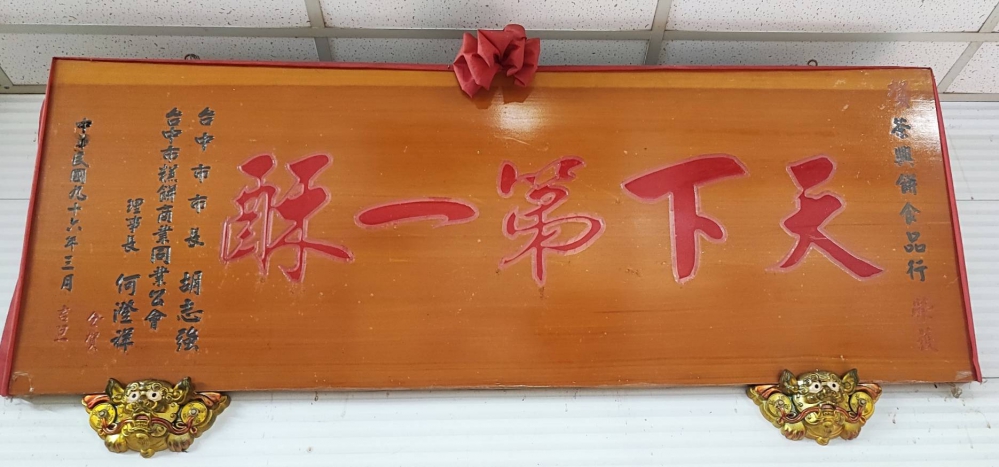 賀 茶興餅食品行 榮獲
天下第一酥
台中市市長 胡志強
台中市糕餅商業同業公會
理事長 何澄祥
仝賀
中華民國九十六年三月 吉立